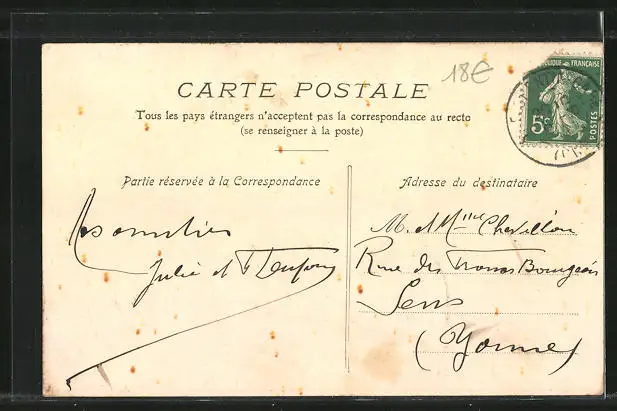 18€
CARTE POSTALE
Tous les pays étrangers n'acceptent pas la correspondance au recto
(se renseigner à la poste)
RÉPUBLIQUE FRANÇAISE
5c
POSTES
Partie réservée à la Correspondance
Adresse du destinataire
Julie et
M. et Mme Chevillon
Rue des Francs Bourgeois
Sens
(Yonne)